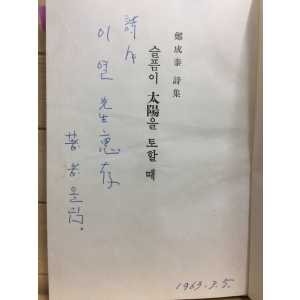 鄭成泰 詩集
슬픔이 太陽을 토할 때
詩人
이열 先生 惠存
著者 올림
1969. 7. 5.